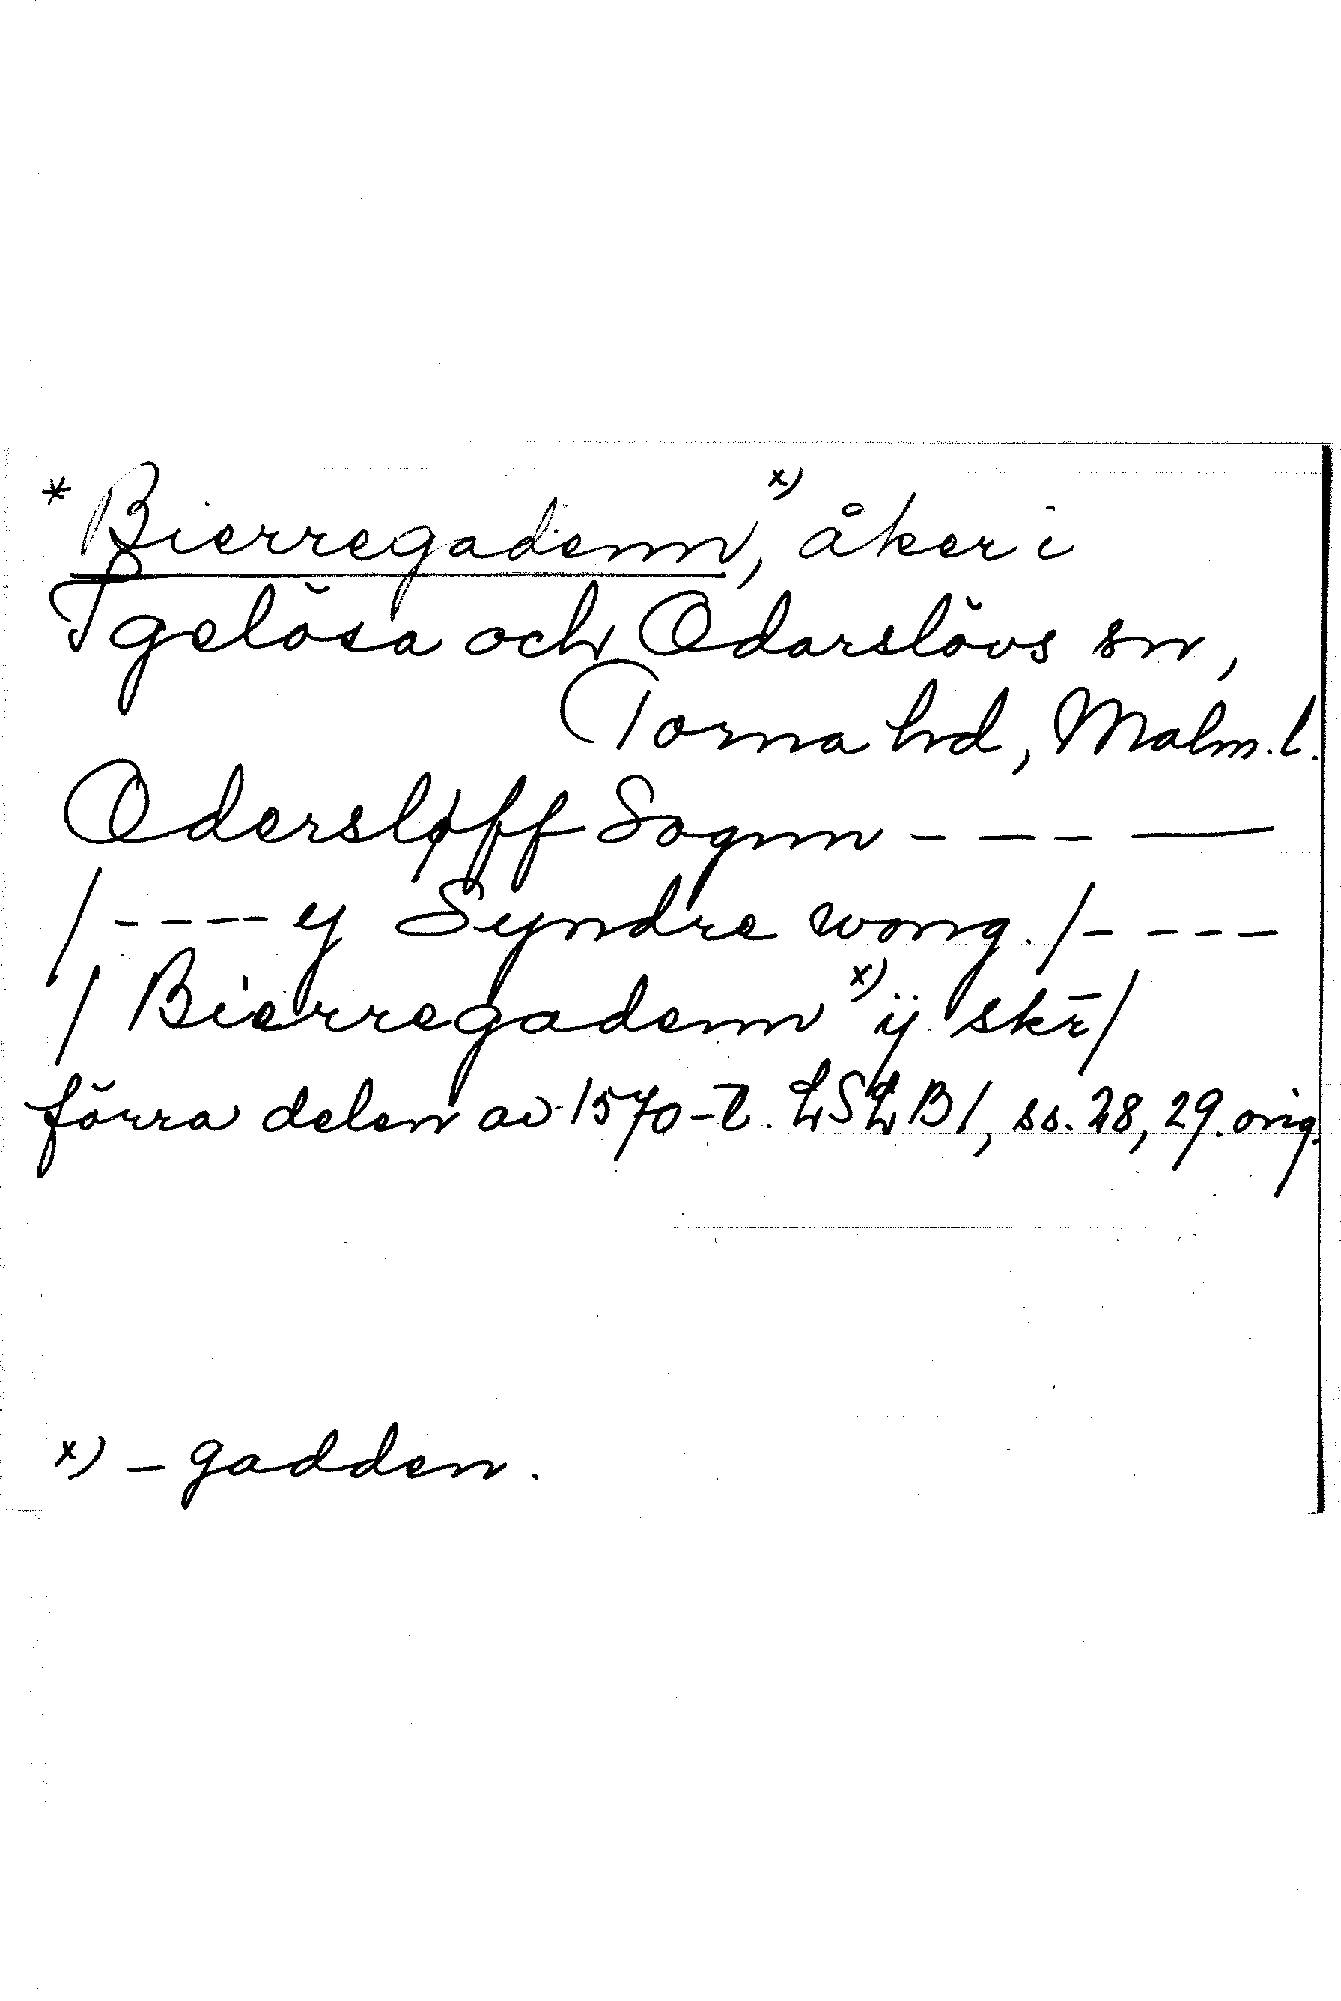 * Bierregadenn x), åker i
Igelösa och Odarslövs sn,
Torna hd, Malm. l.
Odersløff Sognn - - - - —
/ - - - - ij Syndre wong. / - - - -
/ Bierregadenn x) ij skr̄ /
förra delen av 1570-t. LSLB 1, ss. 28, 29. orig.
x) - gadden.